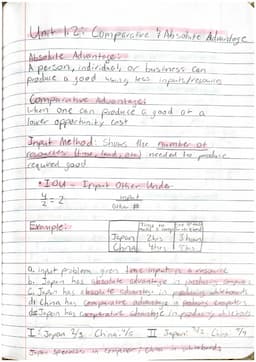 Unit 1.2: Comparative & Absolute Advantage
Absolute Advantage:
A person, individual, or business can
produce a good using less inputs/resources
Comparative Advantage:
When one can produce a good at a
lower opportunity cost
Input Method: Shows the number of
resources (time, land, etc) needed to produce
required good
• IOU - Input Other Under
4/2 = 2
input
other
Example:
Japan 2hrs 3hrs
China 4hrs
a. input problem given time input is a resource
b. Japan has absolute advantage in producing computers
c. Japan has absolute advantage in producing
d. China has comparative advantage in producing computers
Japan has comparative advantage in producing
I: Japan 2/3 China 4/5 II Japan: 3/2 China 5/4
Japan specializes in computer / China in